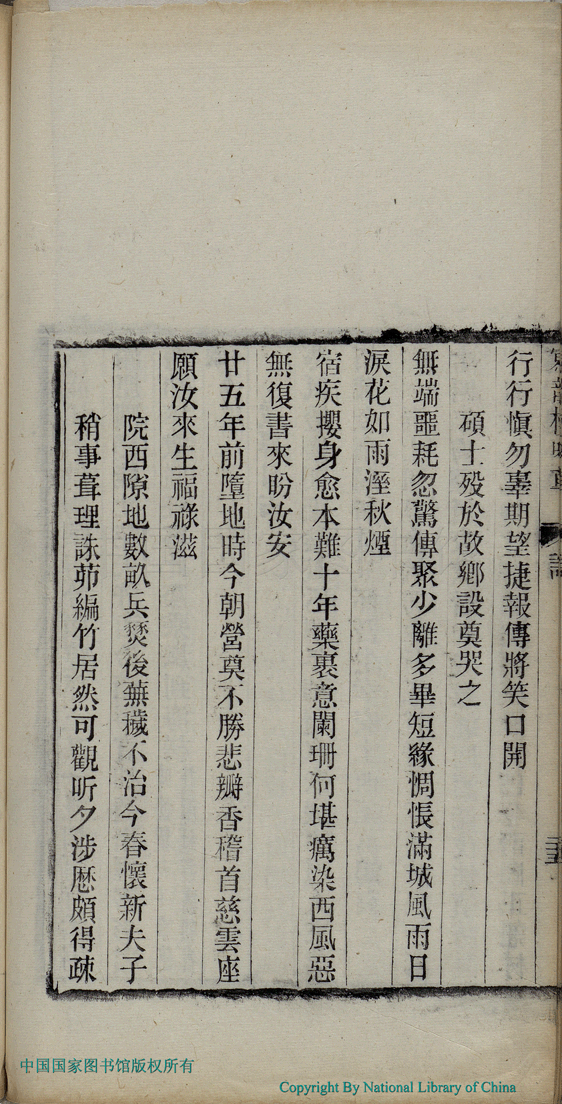 行行慎勿辜期望捷報傳將笑口開
碩士歿於故鄉設奠哭之
無端噩耗忽驚傳聚少離多畢短緣惆悵滿城風雨日
淚花如雨溼秋煙
宿疾攖身愈本難十年藥裹意闌珊何堪癘染西風惡
無復書來盼汝安
廿五年前墮地時今朝營奠不勝悲瓣香稽首慈雲座
願汝來生福祿滋
院西隙地數畝兵燹後蕪穢不治今春懷新夫子
稍事葺理誅茆編竹居然可觀昕夕涉歷頗得疎
中国国家图书馆版权所有
Copyright By National Library of China